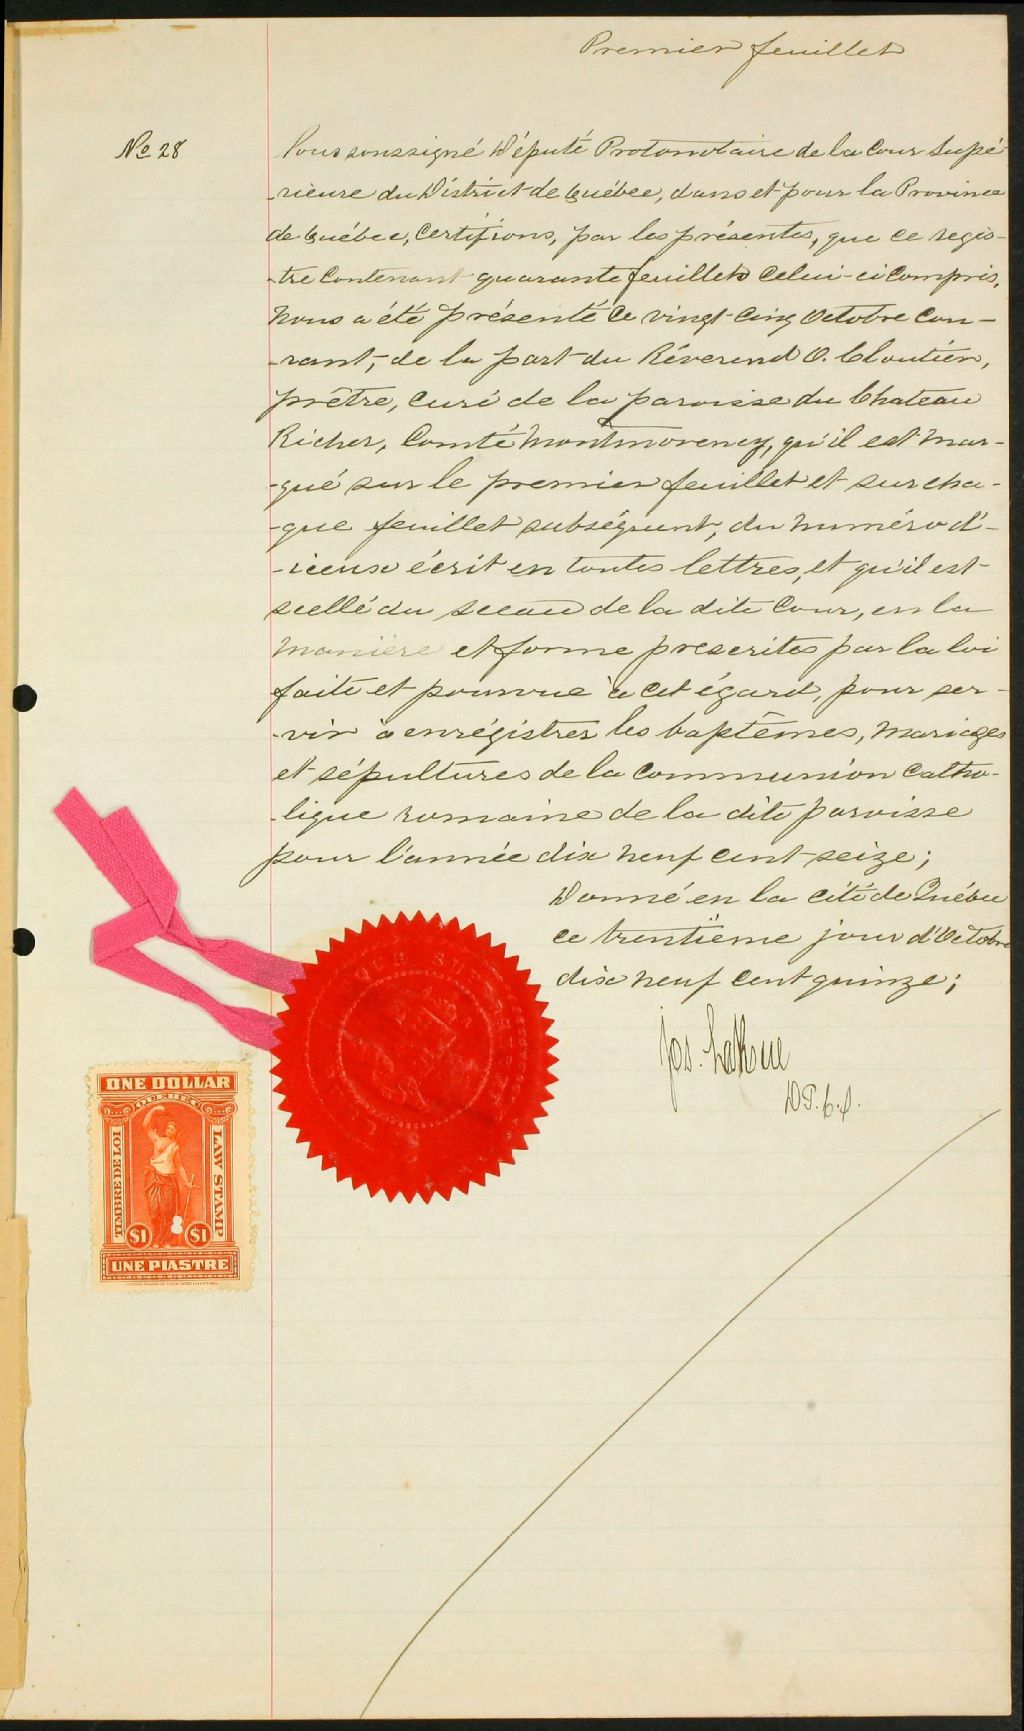 Premier feuillet
No 28
Nous soussigné Député Protonotaire de la Cour Supé-
-rieure du District de Québec, dans et pour la Province
de Québec, Certifions, par les présentes, que ce regis-
-tre Contenant quarante feuillets Celui-ci Compris,
Nous a été présenté Ce vingt-cinq Octobre Cou-
-rant, de la part du Révérend O. Cloutier,
prêtre, Curé de la paroisse du Chateau
Richer, Comté Montmorency, qu'il est Mar-
-qué sur le premier feuillet et sur cha-
-que feuillet subséquent, du Numéro d'-
-iceux écrit en toutes lettres, et qu'il est
scellé du sceau de la dite Cour, en la
Manière et forme prescrites par la loi
faite et pourvue à cet égard, pour ser-
-vir à enrégistrer les baptêmes, Mariages
et sépultures de la Communion Catho-
-lique romaine de la dite paroisse
pour l'année dix neuf cent seize;
Donné en la Cité de Québec
ce trentième jour d'Octobre
dix neuf Cent quinze;
Jos. LaRue
D P. C. S.
ONE DOLLAR
QUEBEC
TIMBRE DE LOI
LAW STAMP
$1 $1
UNE PIASTRE